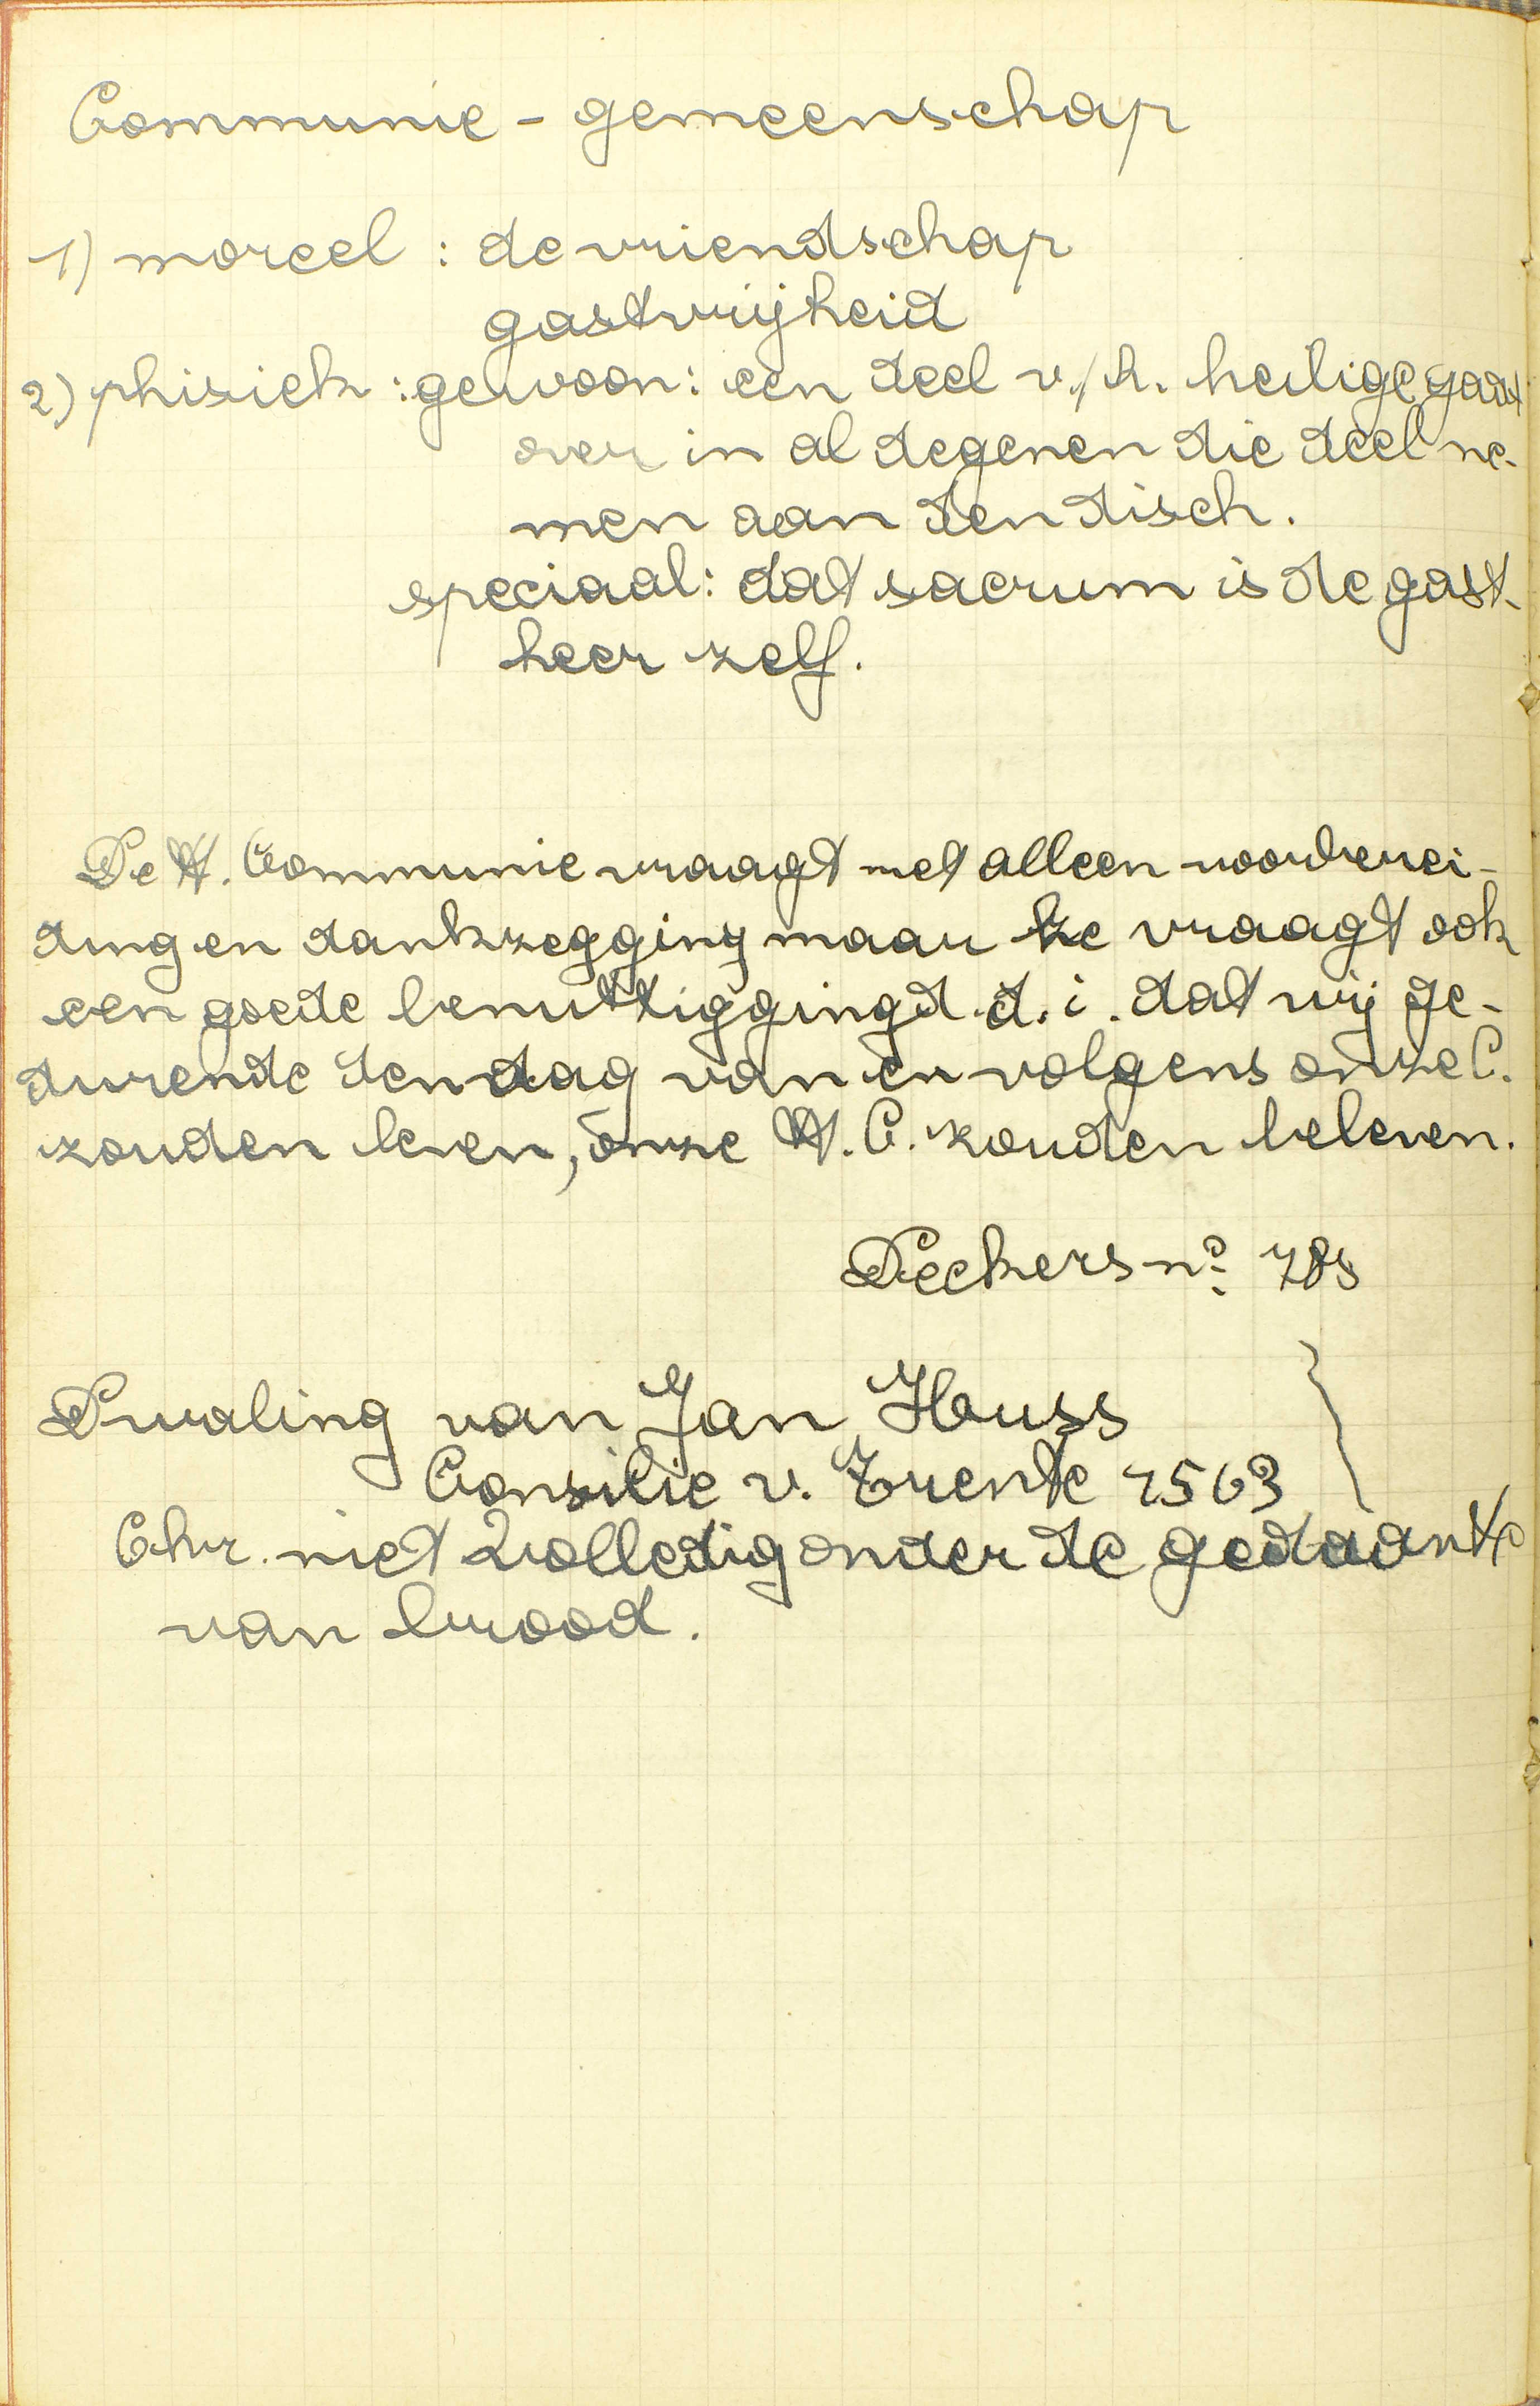 Communie - gemeenschap
1) moreel : de vriendschap
gastvrijheid
2) phisiek : gewoon : een deel v./h. heilige gaat
over in al degenen die deel ne-
men aan den disch.
speciaal : dat sacrum is de gast-
heer zelf.
De H. Communie vraagt niet alleen voorberei-
ding en dankzegging maar ze vraagt ook
een goede benuttigging d.i. dat wij ge-
durende den dag van en volgens onze C.
zouden leven, onze H. C. zouden beleven.
Deckers nº 785
Dwaling van Jan Huss
Consilie v. Trente 1563
Chr. niet volledig onder de gedaante
van brood.